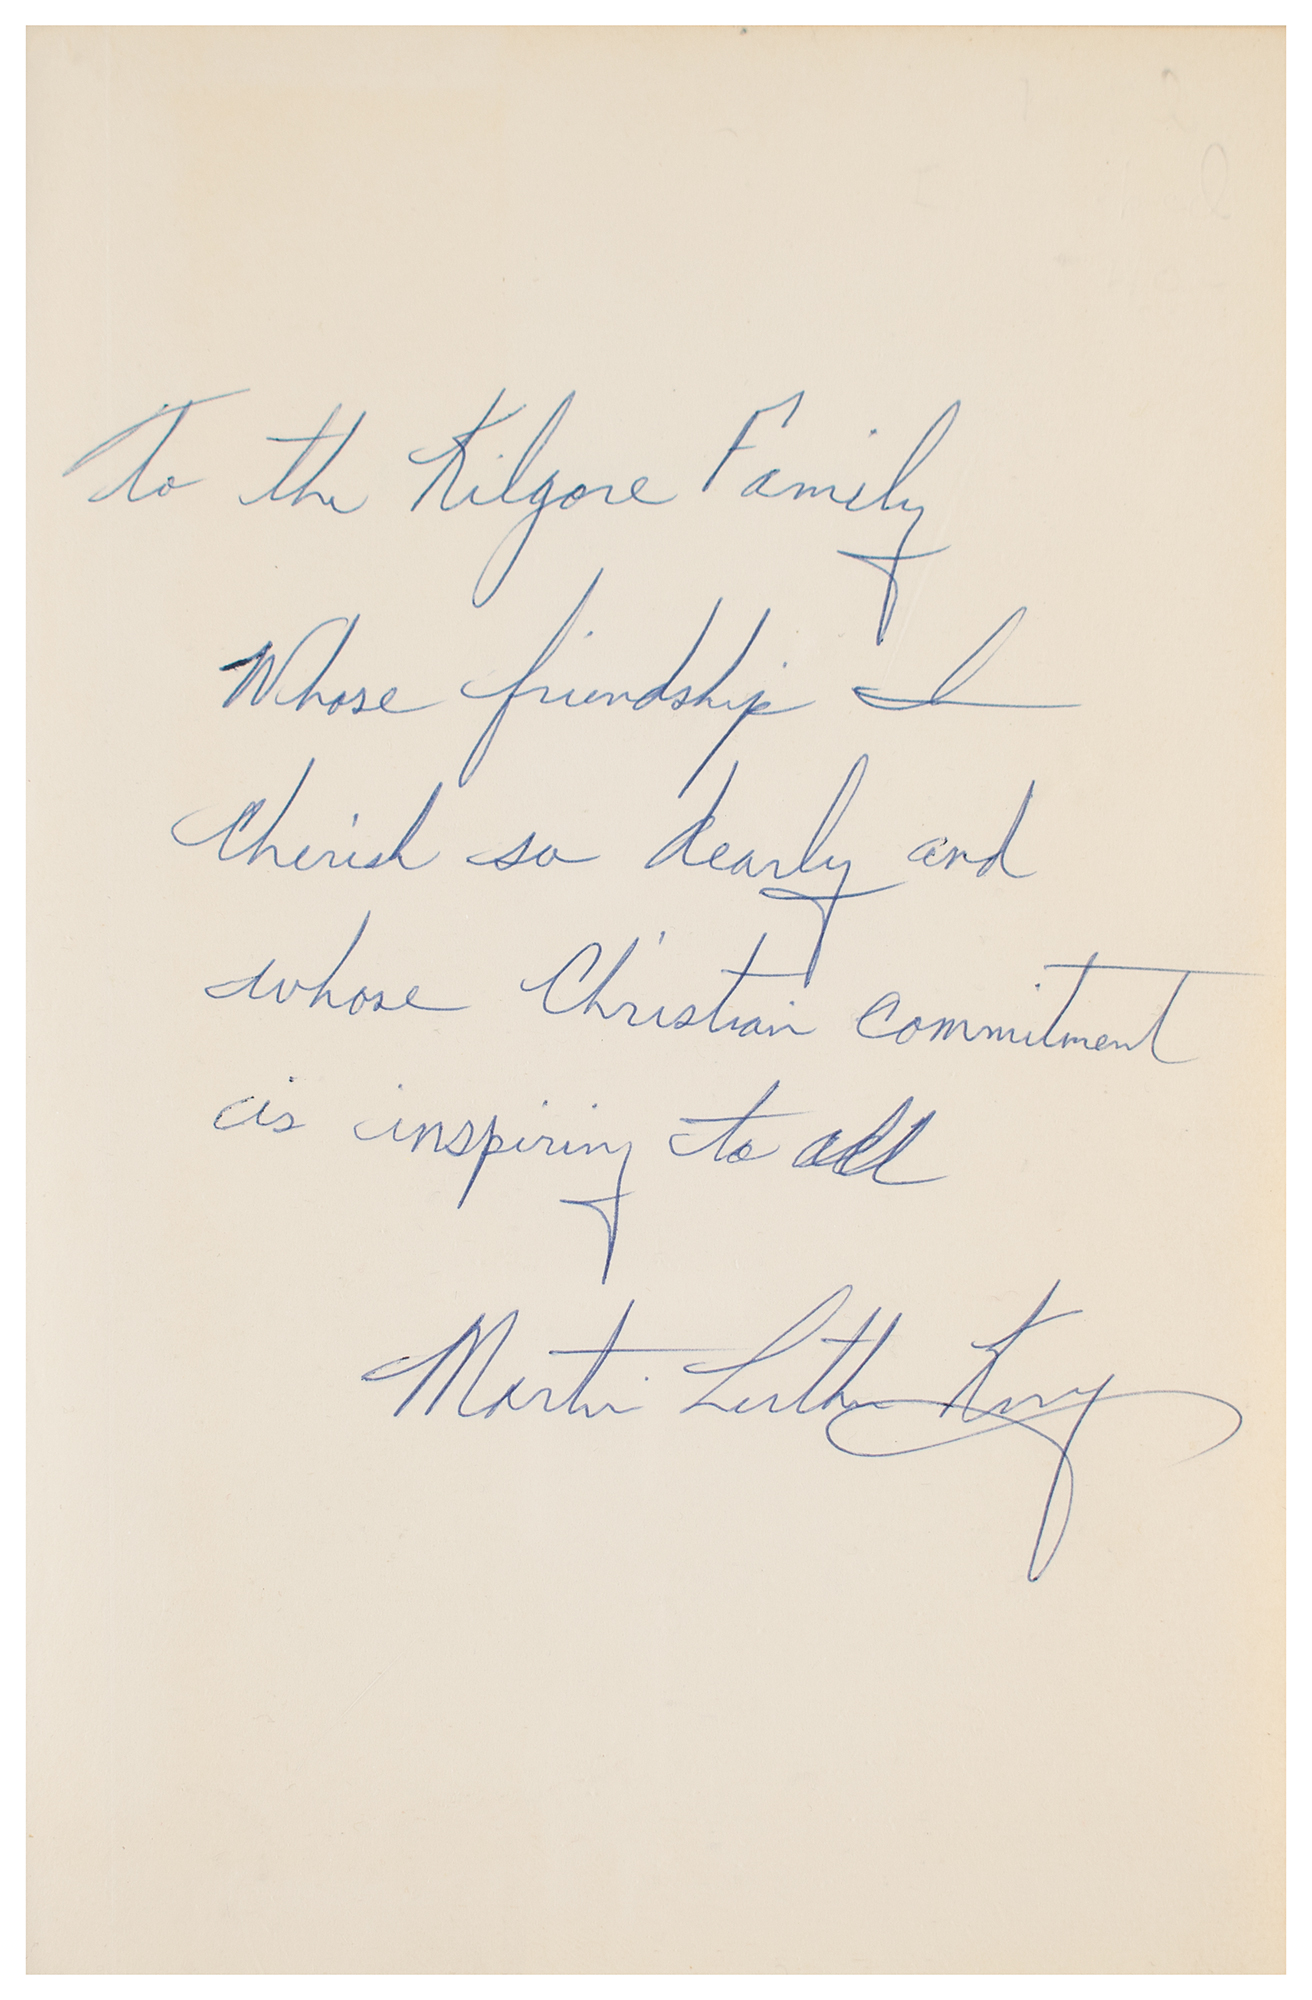 To the Kilgore Family
Whose friendship I
Cherish so dearly and
whose Christian commitment
is inspiring to all
Martin Luther King